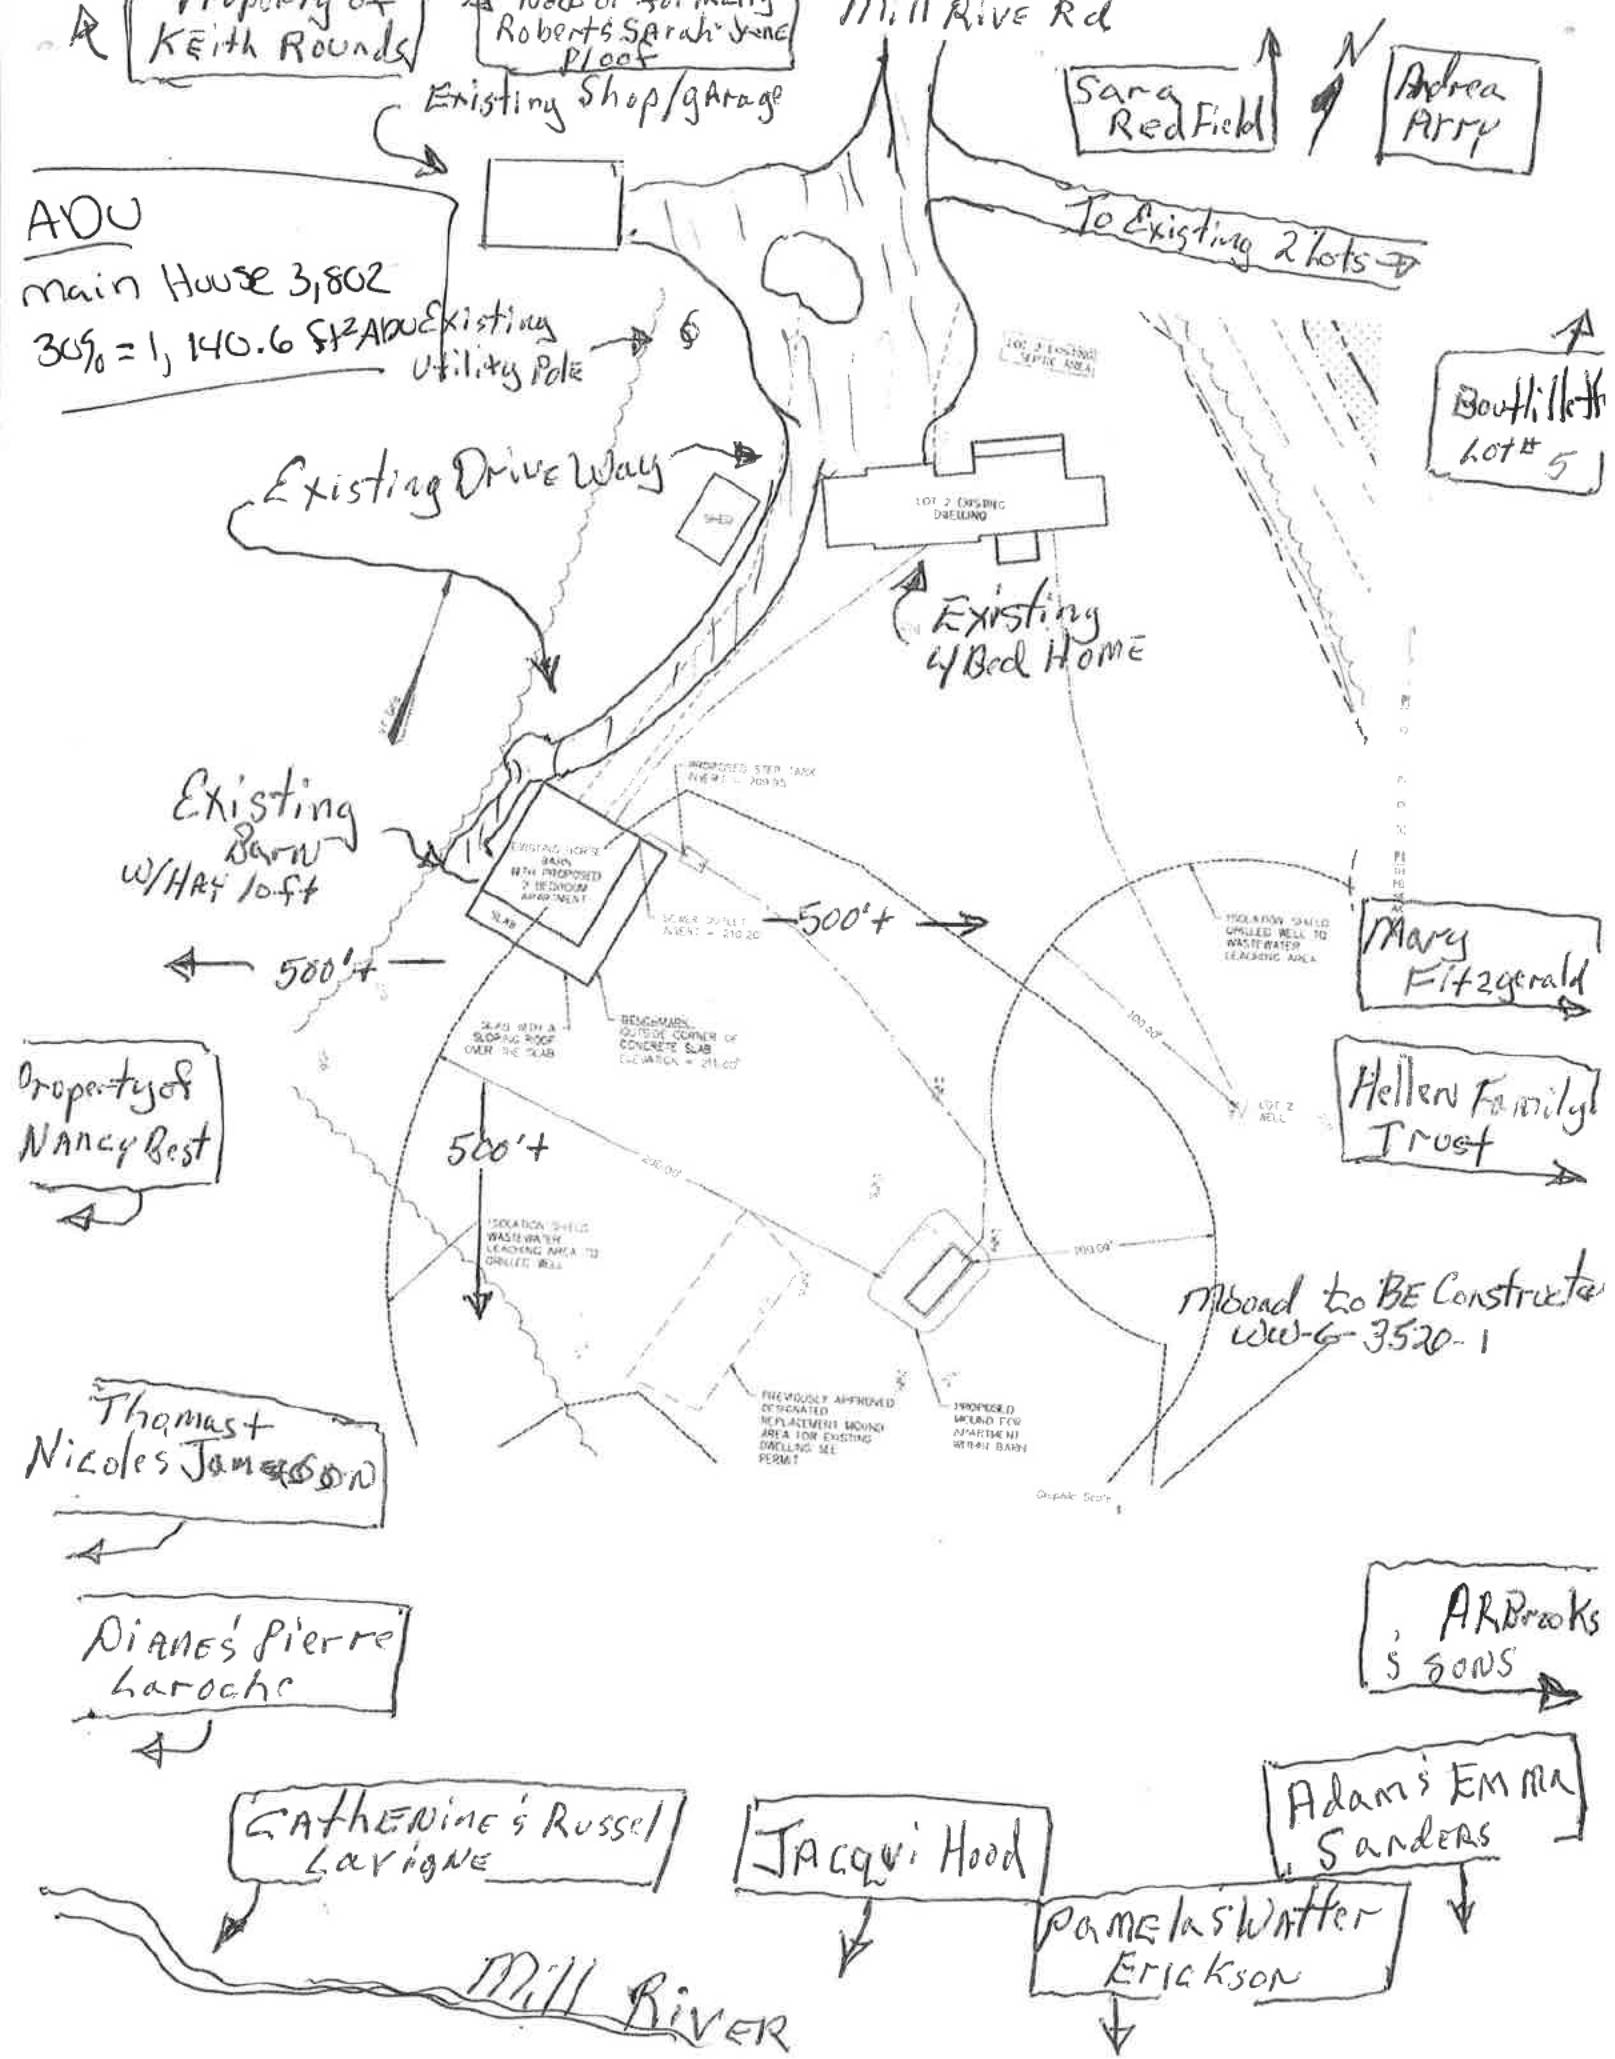 Property of
Keith Rounds
Now or formerly
Robert & Sarah Jane
Ploof
Mill Rive Rd
Existing Shop/gArage
Sara
RedField
N
Andrea
Arry
ADU
main House 3,802
30% = 1,140.6 ft² ADU
To Existing 2 Lots
Existing
Utility Pole
LOT 2 EXISTING
SEPTIC AREA
Lot# 5
Existing DriveWay
SHED
LOT 2 EXISTING
DWELLING
Existing
4 Bed HOME
PROPOSED STEP TANK
INVERT = 209.95
Existing
Barn
W/HAY loft
EXISTING HORSE
BARN
WITH PROPOSED
2 BEDROOM
APARTMENT
SLAB
SEWER OUTLET
INVERT = 210.20
500'+
500'+
ISOLATION SHIELD
DRILLED WELL TO
WASTEWATER
LEACHING AREA
Mary
Fitzgerald
SLAB WITH A
SLOPING ROOF
OVER THE SLAB
BENCHMARK
OUTSIDE CORNER OF
CONCRETE SLAB
ELEVATION = 211.00'
100.00'
LOT 2
WELL
Property of
NANcy Best
Hellen Family
Trust
500'+
200.00'
ISOLATION SHIELD
WASTEWATER
LEACHING AREA TO
DRILLED WELL
100.00'
Mound to BE Constructe
WW-6-3520-1
Thomas +
Nicoles JamesON
PREVIOUSLY APPROVED
DESIGNATED
REPLACEMENT MOUND
AREA FOR EXISTING
DWELLING SEE
PERMIT
PROPOSED
MOUND FOR
APARTMENT
WITHIN BARN
Graphic Scale
DiANE & Pierre
Laroche
ARBrooks
& SONS
CAthENiNE & Russel
LavigNE
JAcqui Hood
Adam & EMMA
SandERS
PamEla & WAtter
Erickson
Mill RivER